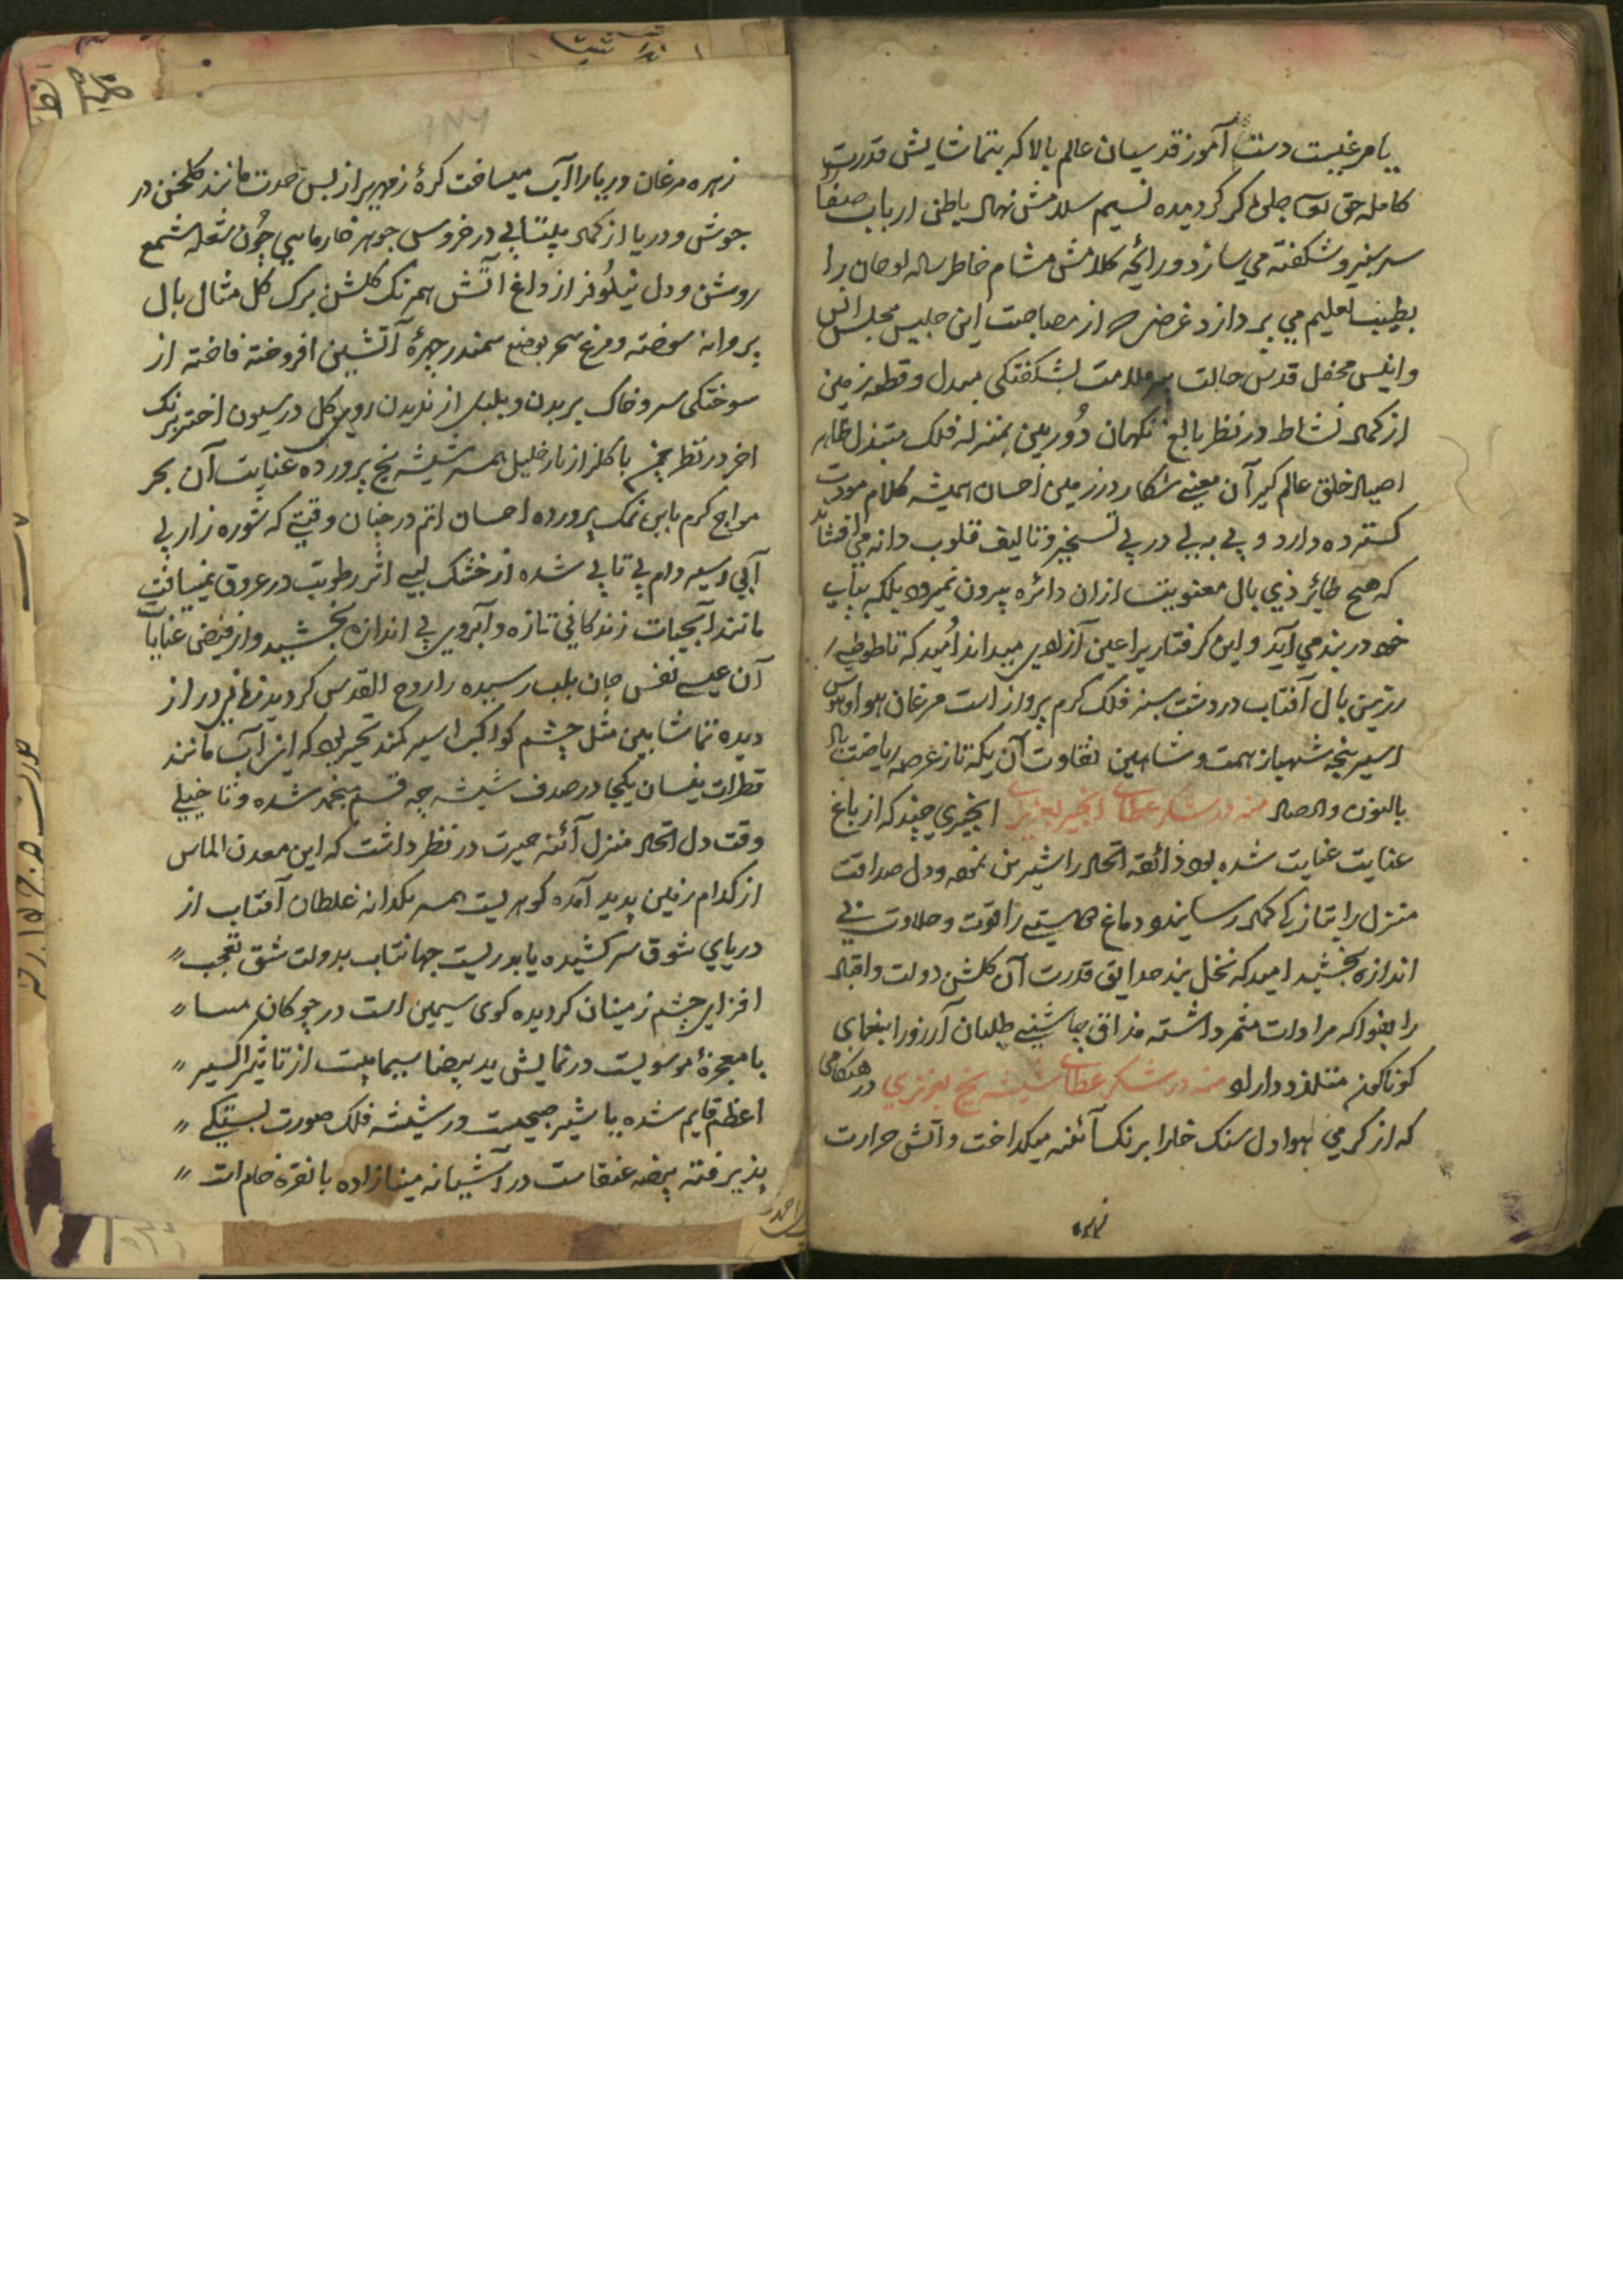 یا مرغیست دست آموز قدسیان عالم بالا که بتماشایش قدرت
کامله حق جلی کر کردیده نسیم سلامش نهال باطن ارباب صفا
سرسبز و شکفته می سازد و رائحه کلامش مشام خاطر را
می پردازد غرض که از مصاحبت این جلیس مجلس انس
و انیس محفل قدس ملامت بشکفتکی مبدل و قطعه زمین
از کمال نشاط در نظر بالغ نکهان دوربین بمنزله فلک
خلق عالم کیر آن معنی شکار در زمین احسان همیشه کلام مودت
کسترده دارد و پی به پی در پی تسخیر و تالیف قلوب دانه می افشاند
که هیچ طائر ذی بال معنویت از ان دائره بیرون نمیرود بلکه بپای
خود در بند می آید و این کرفتاری را عین آزادی میداند امید که تا طوطی
زرین بال آفتاب در دشت سبز فلک کرم پرواز است مرغان هوا و هوس
اسیر پنجه شهباز همت و شاهین آن یکه تاز عرصه ریاضت باد
بالنون والصاد منه در شکر عطای انجیر بعزیزی انجیری چند که از باغ
عنایت عنایت شده بود ذائقه اتحاد را شیرین نمود و دل صداقت
منزل را بتازکی کمال رسانید و دماغ را قوت و حلاوت بی
اندازه بخشید امید که نخل بند حدایق قدرت آن کلشن دولت و اقبال
را بفواکه مرادات مثمر داشته مذاق چاشنی طلبان آرزو را بنعمای
کوناکون متلذذ داراد منه در شکر عطای شیشه یخ بعزیزی در هنکامی
که از کرمی هوا دل سنک خارا برنک آئنه میکداخت و آتش حرارت
زهره
زهره مرغان دریا را آب میساخت کرهٔ زمهریر از بس حدت مانند کلخن در
جوش و دریا از کمال بیتابی در خروش جوهر خار ماهی چون شعله شمع
روشن و دل نیلوفر از داغ آتش همرنک کلشن برک کل مثال بال
پروانه سوخته و مرغ سحر بوضع سمندر چهرهٔ آتشین افروخته فاخته از
سوختکی سرو خاک بر بدن و بلبل از ندیدن روی کل در شیون اختر برنک
اخکر در نظر یا کلزار نار خلیل شیشه یخ پرورده عنایت آن بحر
مواج کرم باین نمک پرورده احسان اتم در چنان وقتی که شوره زار بی
آبی اسیر دام بی تابی شده از خشک لبی اثر رطوبت در عروق نمییافت
مانند آبحیات زندکانی تازه و آبروی بی اندازه بخشید و از فیض عنایات
آن عیسی نفس جان بلب رسیده را روح القدس کردید زمانی دراز
دیده تماشابین مثل چشم کواکب اسیر کمند تحیر بود که این آب مانند
قطرات نیسان یکجا در صدف شیشه چه قسم منجمد شده و تا خیلی
وقت دل اتحاد منزل آئنه حیرت در نظر داشت که این معدن الماس
از کدام زمین پدید آمده کوهریست همسر یکدانه غلطان آفتاب از
دریای شوق سر کشیده یا بدریست جهانتاب بدولت شق تعجب
افزای چشم زمینیان کردیده کوی سیمین است در چوکان
یا معجزهٔ موسویست در نمایش ید بیضا سیمابیست از تاثیر اکسیر
اعظم قایم شده یا شیر صبحیست در شیشه فلک صورت بستکی
پذیرفته بیضه عنقاست در آشیانه مینا زاده یا نقرهٔ خام است